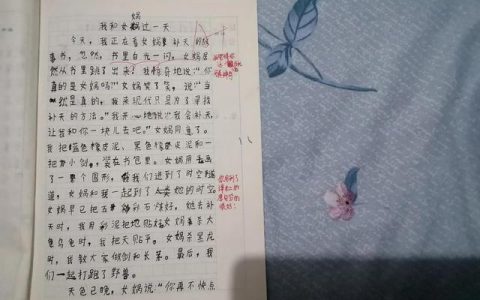 娲
我和女娲过一天
今天，我正在看女娲补天的故
事书，忽然，书里白光一闪，女娲居
然从书里跳了出来！我惊奇地说：“你
真的是女娲吗？”女娲笑了笑，说：“当
然是真的，我来现代只是为了寻找
补天的方法。”我开心地说：“我会补天，
让我和你一块儿去吧。”女娲同意了。
我把蓝色橡皮泥、黑色橡皮泥和一
把小剑，装在书包里。女娲用手画
了一个圆形，我们进到了时空隧
道，女娲和我一起到了她的时空。
女娲早已把五彩石炼好，她去补
天时，我用彩泥把地贴好。女娲杀大
龟乌龟时，我把天贴平。女娲杀黑龙
时，我教大家做剑和长矛。最后，我
们一起打跑了野兽。
天色已晚，女娲说：“你再不快点